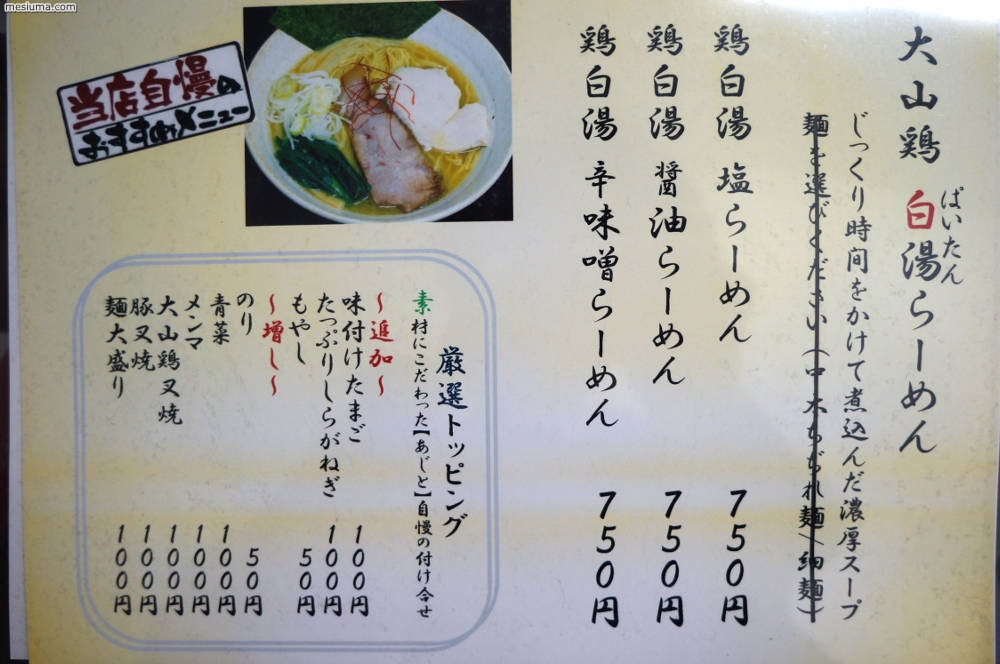 mesiuma.com
大山鶏 白湯らーめん
ぱいたん
じっくり時間をかけて煮込んだ濃厚スープ
麺を選びください(中太ちぢれ麺)(細麺)
鶏白湯 塩らーめん 750円
鶏白湯 醤油らーめん 750円
鶏白湯 辛味噌らーめん 750円
当店自慢の
おすすめメニュー
厳選トッピング
素材にこだわった【あじと】自慢の付け合せ
~追加~
味付けたまご 100円
たっぷりしらがねぎ 100円
もやし 50円
~増し~
のり 50円
青菜 100円
メンマ 100円
大山鶏叉焼 100円
豚叉焼 100円
麺大盛り 100円